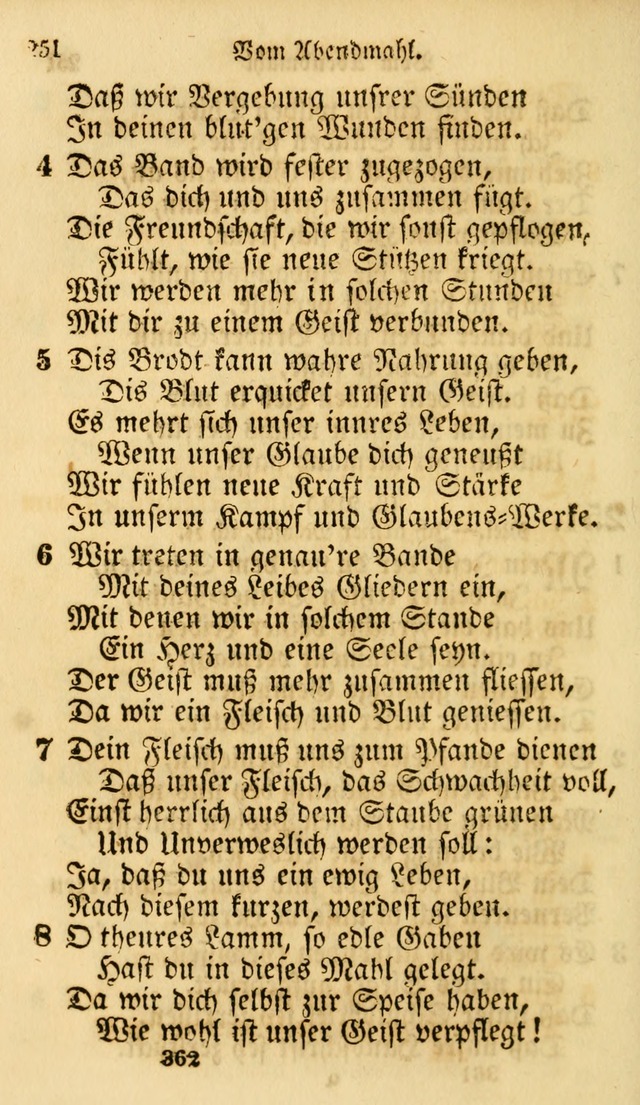 351 Vom Abendmahl.
Daß wir Vergebung unsrer Sünden
In deinen blut'gen Wunden finden.
4 Das Band wird fester zugezogen,
Das dich und uns zusammen fügt.
Die Freundschaft, die wir sonst gepflogen,
Fühlt, wie sie neue Stützen kriegt.
Wir werden mehr in solchen Stunden
Mit dir zu einem Geist verbunden.
5 Dis Brodt kann wahre Nahrung geben,
Dis Blut erquicket unsern Geist.
Es mehrt sich unser innres Leben,
Wenn unser Glaube dich geneußt
Wir fühlen neue Kraft und Stärke
In unserm Kampf und Glaubens-Werke.
6 Wir treten in genau're Bande
Mit deines Leibes Gliedern ein,
Mit denen wir in solchem Stande
Ein Herz und eine Seele seyn.
Der Geist muß mehr zusammen fliessen,
Da wir ein Fleisch und Blut geniessen.
7 Dein Fleisch muß uns zum Pfande dienen
Daß unser Fleisch, das Schwachheit voll,
Einst herrlich aus dem Staube grünen
Und Unverweslich werden soll:
Ja, daß du uns ein ewig Leben,
Nach diesem kurzen, werdest geben.
8 O theures Lamm, so edle Gaben
Hast du in dieses Mahl gelegt.
Da wir dich selbst zur Speise haben,
Wie wohl ist unser Geist verpflegt!
362